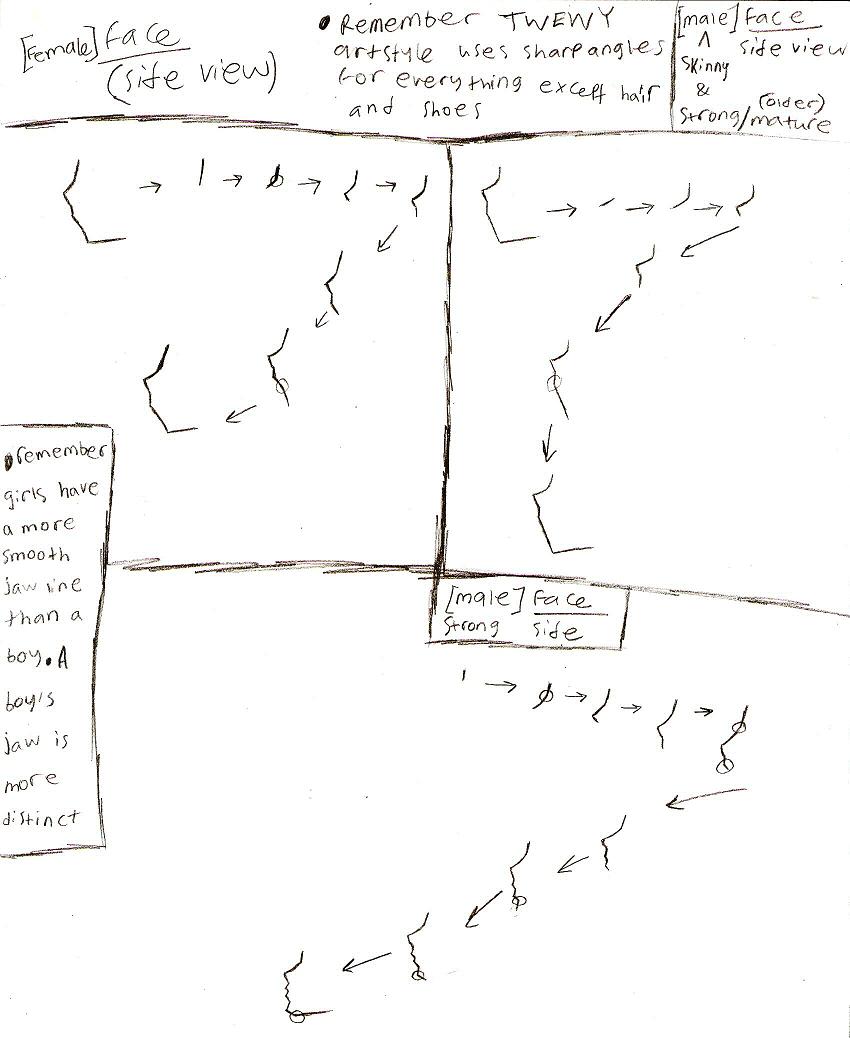 [Female] Face
(side view)
• Remember TWEWY
artstyle uses sharp angles
for everything except hair
and shoes
[male] face
^ side view
Skinny
&
(older)
Strong/mature
• remember
girls have
a more
smooth
jaw line
than a
boy. A
boy's
jaw is
more
distinct
[male] Face
Strong side